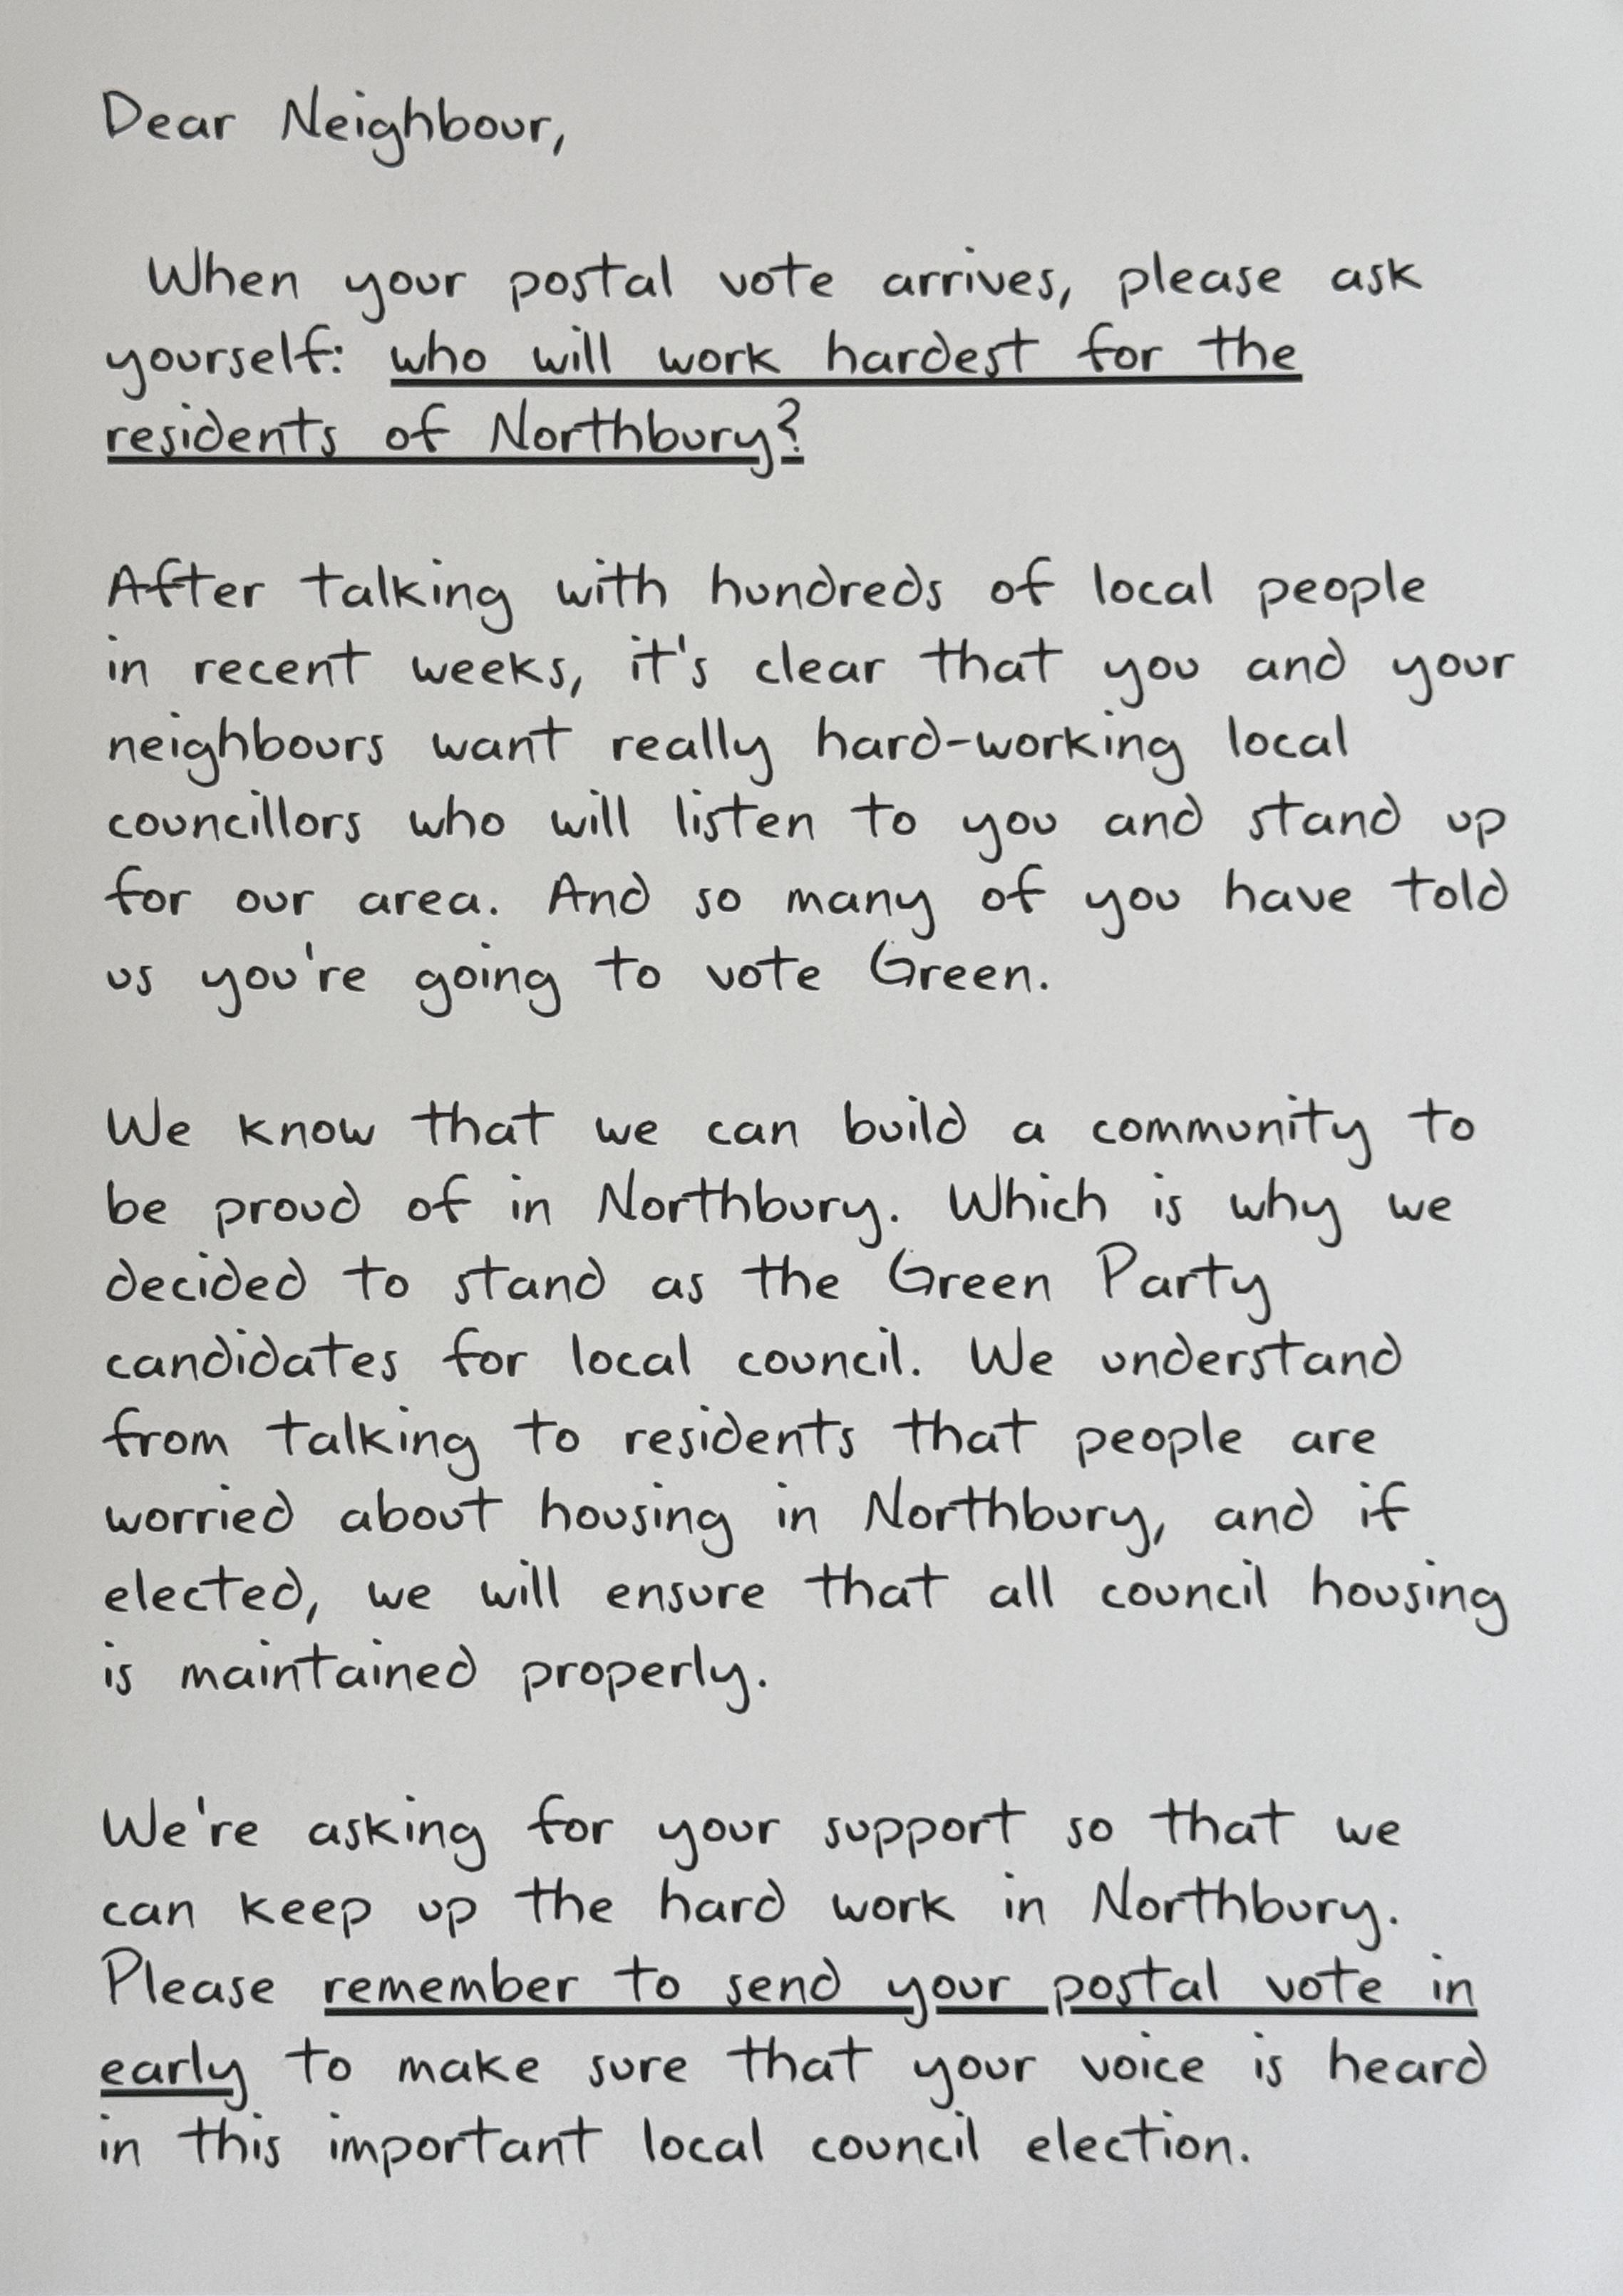 Dear Neighbour,
When your postal vote arrives, please ask
yourself: who will work hardest for the
residents of Northbury?
After talking with hundreds of local people
in recent weeks, it's clear that you and your
neighbours want really hard-working local
councillors who will listen to you and stand up
for our area. And so many of you have told
us you're going to vote Green.
We know that we can build a community to
be proud of in Northbury. Which is why we
decided to stand as the Green Party
candidates for local council. We understand
from talking to residents that people are
worried about housing in Northbury, and if
elected, we will ensure that all council housing
is maintained properly.
We're asking for your support so that we
can keep up the hard work in Northbury.
Please remember to send your postal vote in
early to make sure that your voice is heard
in this important local council election.